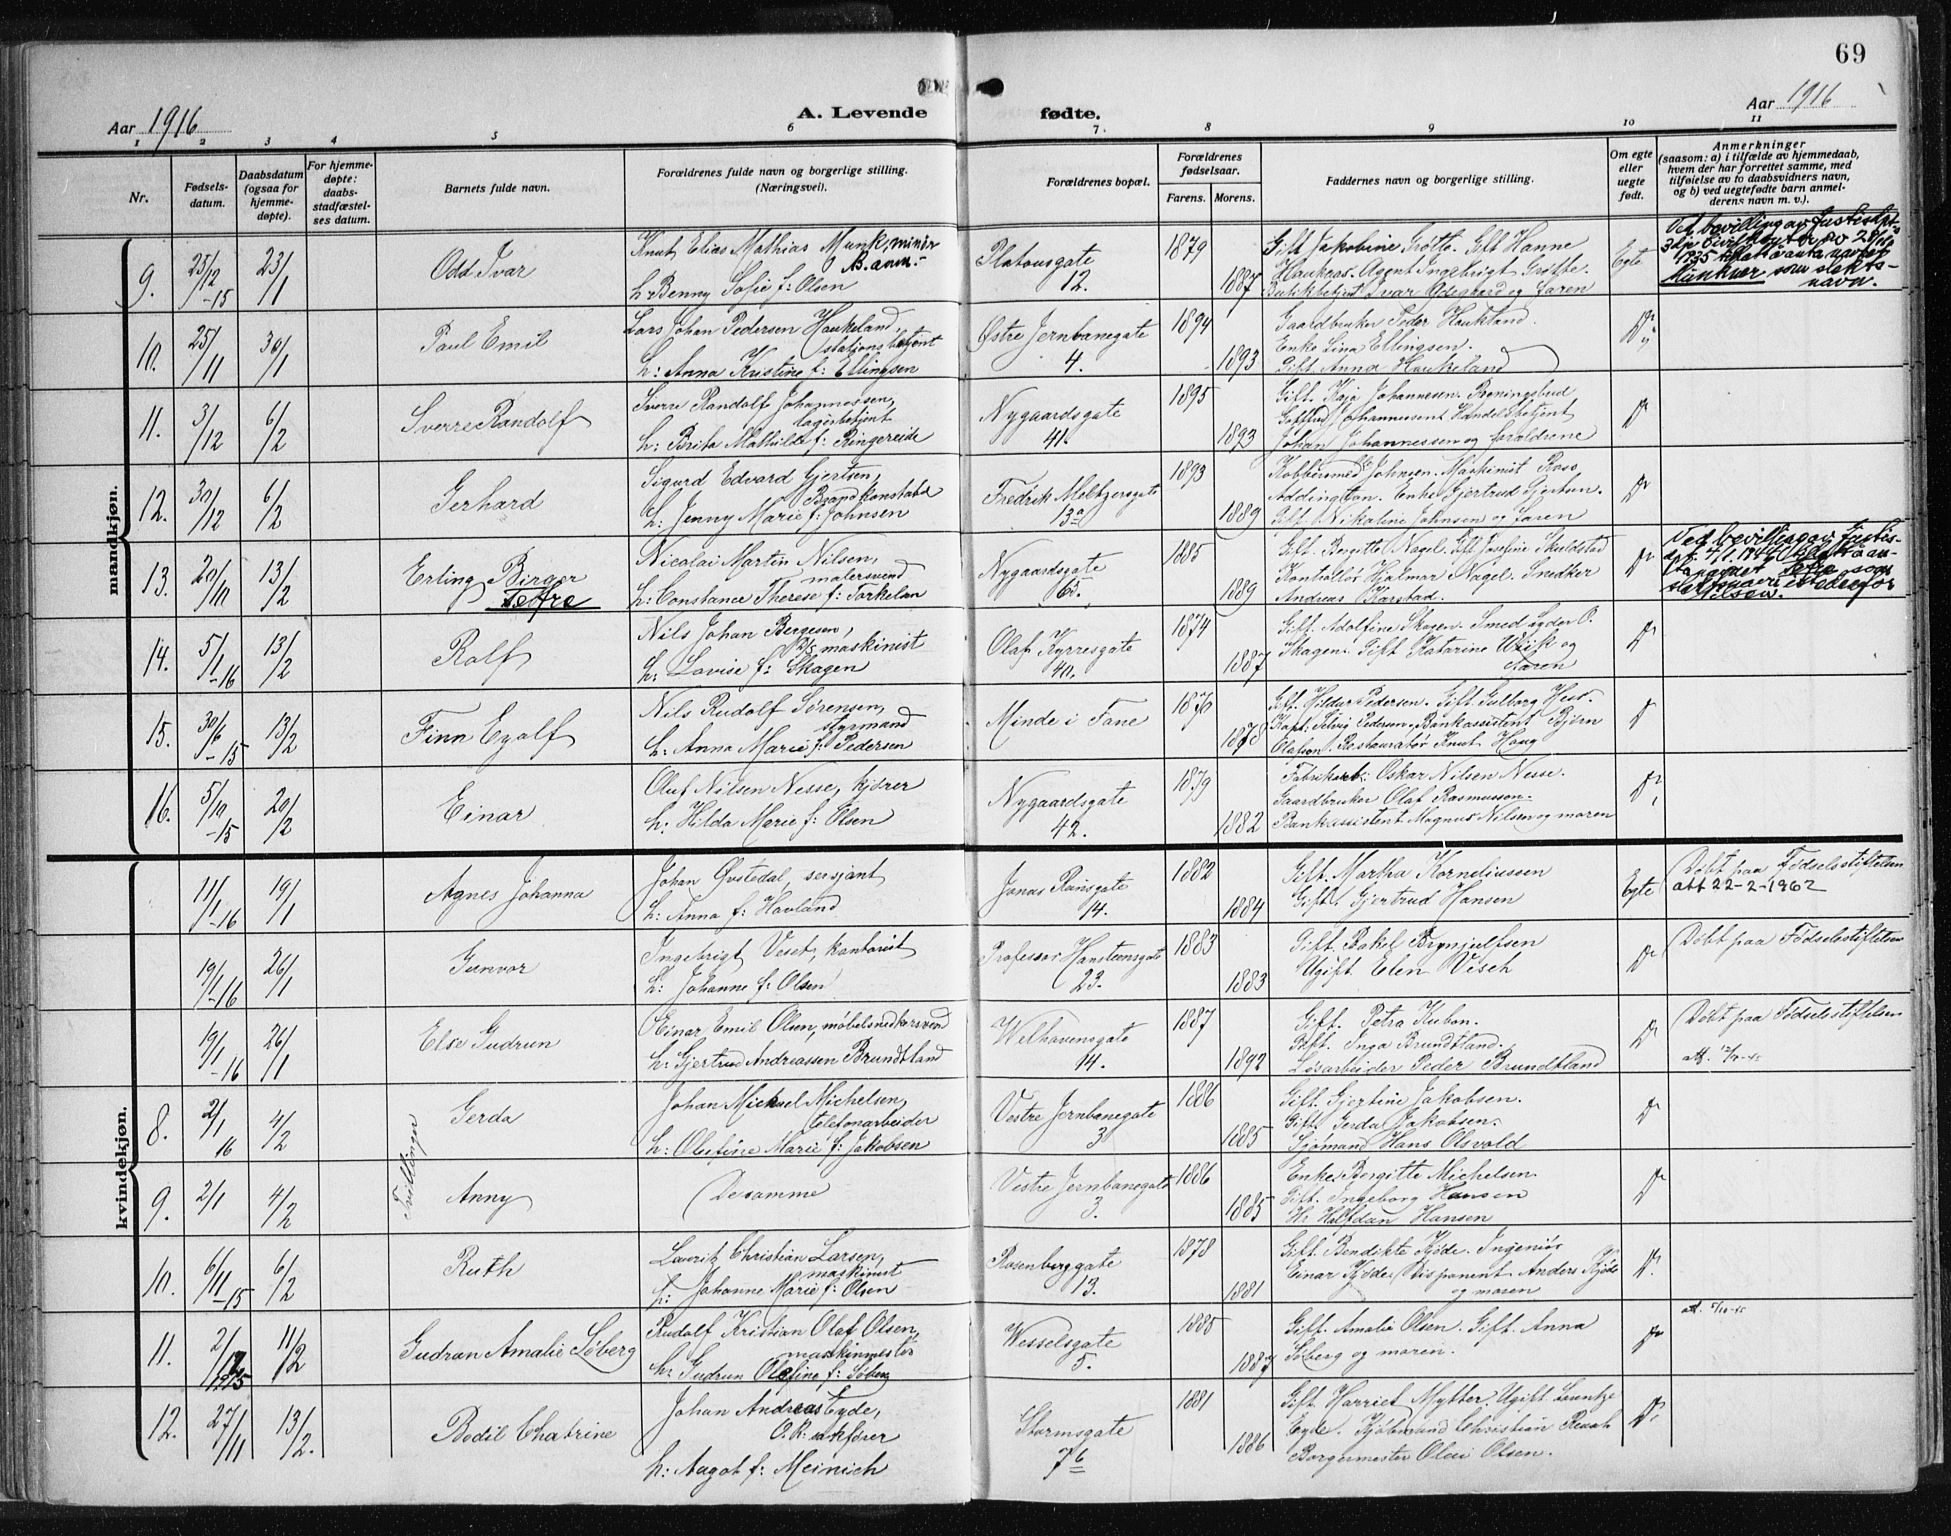 69
Aar 1916
A. Levende fødte.
Aar 1916
1 2 3 4 5 6 7. 8 9 10 11
Nr.
Fødsels-
datum.
Daabsdatum
(ogsaa for
hjemme-
døpte).
For hjemme-
døpte:
daabs-
stadfæstel-
ses datum.
Barnets fulde navn.
Forældrenes fulde navn og borgerlige stilling.
(Næringsvei).
Forældrenes bopæl.
Forældrenes
fødselsaar.
Farens. Morens.
Faddernes navn og borgerlige stilling.
Om egte
eller
uegte
født.
Anmerkninger
(saasom: a) i tilfælde av hjemmedaab,
hvem der har forrettet samme, med
tilføielse av to daabsvidners navn,
og b) ved uegtefødte barn anmel-
derens navn m. v.).
mandkjøn.
9. 25/12-15 23/1 Odd Ivar
Knut Elias Mathias Munk, minør
B. anm.
h: Benny Sofie f: Olsen
Platousgate
12.
1879 1887
Gift Jakobine Grøtte. Gift Hanne
Hauknas. Agent Ingebrigt Grøtte.
Butikbetjent Ivar Ødegaard og faren
Egte
Ved bevilling av Justisdpt
1935
Munknær som slekts-
navn.
10. 25/11 30/1 Paul Emil
Lars Johan Pedersen Haukeland,
stationsbetjent
h: Anna Kristine f: Ellingsen
Østre Jernbanegate
4.
1894 1893
Gaardbruker Peder Haukland.
Enke Lina Ellingsen.
Gift. Anna Haukeland
Do
11. 3/12 6/2 Sverre Randolf
Sverre Randolf Johannessen,
lagerbetjent
h: Brita Mathilde f: Ringereide
Nygaardsgate
41.
1895 1893
Gift. Kaja Johannesen. Reningsbud
Johannesen. Handelsbetjent
Johan Johannessen og forældrene
Do
12. 30/12 6/2 Gerhard
Sigurd Edvard Gjertsen,
Brandkonstabel
h: Jenny Marie f: Johnsen
Fredrik Meltzersgate
13a
1893 1889
Kobbersmed Johnsen. Maskinist Ross
Addington. Enke Gjertrud Gjertsen.
Gift Nikoline Johnsen og faren
Do
13. 20/11 13/2 Erling Birger
Tefre
Nicolai Martin Nilsen,
malersvend
h: Constance Therese f: Torkelsen
Nygaardsgate
65.
1885 1889
Gift. Bergitte Nagel. Gift Josefine Skuldstad
Kontrollør Hjalmar Nagel. Snedker
Andreas Karstad.
Do
Ved bevilling av Justis-
Tefre som
slektsnavn istedenfor
Nilsen.
14. 5/1-16 13/2 Rolf
Nils Johan Bergesen,
D/S maskinist
h: Lovise f: Skagen
Olaf Kyrresgate
40.
1874 1887
Gift. Adolfine Skagen. Smed Peder O.
Skagen. Gift Katarine Wiik og
faren
Do
15. 30/6-15 13/2 Finn Eyolf
Nils Rudolf Sørensen,
styrmand
h. Anna Marie f: Pedersen
Minde i Fane
1876 1878
Gift. Hildur Pedersen. Gift Gulborg Hest.
Kapt. Pedersen. Bankassistent Bjørn
Olafson. Restauratør Knut Haug
Do
16. 5/10-15 20/2 Einar
Oluf Nilsen Nesse, kjører
h: Hilda Marie f: Olsen
Nygaardsgate
42.
1879 1882
Fabrikarb: Oskar Nilsen Nesse.
Gaardbruker Olaf Rasmussen.
Bankassistent Magnus Nilsen og moren
Do
kvindekjøn.
11/1-16 19/1 Agnes Johanna
Johan Øvstedal, sersjant
h: Anna f: Havland
Jonas Reinsgate
14.
1882 1884
Gift. Martha Korneliussen
Gift. Gjertrud Hansen
Egte
Døbt paa Fødselsstiftelsen
att 22-2-1962
19/1-16 26/1 Gunvor
Ingebrigt Veset, kontorist
h: Johanne f: Olsen
Professor Hansteensgate
23.
1883 1883
Gift. Rakel Brynjulfsen
Ugift. Elen Visch
Do
Døbt paa Fødselsstiftelsen
19/1-16 26/1 Else Gudrun
Einar Emil Olsen, møbelsnedkersvend
h: Gjertrud Andreassen Brundtland
Welhavensgate
14.
1887 1892
Gift. Petra Kubon.
Gift. Inga Brundtland.
Løsarbeider Peder Brundtland
Do
Døbt paa Fødselsstiftelsen
Tvillinger
8. 2/1 16 4/2 Gerda
Johan Mickael Michelsen,
telefonarbeider
h: Olufine Marie f: Jakobsen
Vestre Jernbanegate
3
1886 1885
Gift. Gjertine Jakobsen.
Gift Gerda Jakobsen.
Sjømand Hans Olsvold
Do
9. 2/1 4/2 Anny
De samme
Vestre Jernbanegate
3.
1886 1885
Enke Bergitte Michelsen
Gift. Ingeborg Hansen
Hr Halfdan Hansen
Do
10. 6/11-15 6/2 Ruth
Laurits Christian Larsen,
maskinist
h. Johanne Marie f: Olsen
Rosenberggate
13.
1878 1881
Gift. Bendikte Kjøde. Ingeniør
Einar Kjøde. Disponent Anders Kjøde
og moren
Do
11. 2/12 15 11/2 Gudrun Amalie Søberg
Rudolf Kristian Olaf Olsen,
maskinmester
h: Gudrun Olefine f: Søberg
Wesselsgate
5.
1885 1887
Gift. Amalie Olsen. Gift. Anna
Søberg og moren.
Do
12. 27/11 13/2. Bodil Chatrine
Johan Andreas Eyde,
O.R. sakfører
h: Aagot f: Meinich
Stormsgate
7b
1881 1886
Gift. Harriet Mytter. Ugift Leuntze
Eyde. Kjøbmand Christian Raah
Borgermester Olai Olsen.
Do